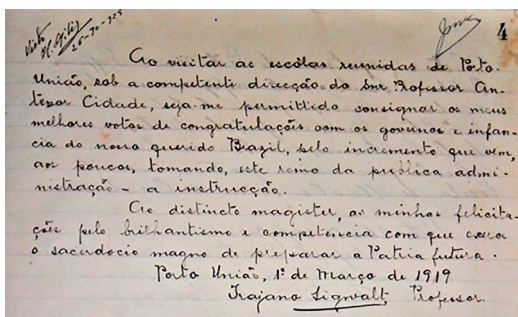 Visto
4
Ao visitar as escólas reunidas de Porto
União, sob a competente direcção do Snr Professor An-
tenor Cidade, seja-me permittido consignar os meus
melhores votos de congratulações com os governos e infan-
cia do nosso querido Brazil, pelo incremento que vem,
aos poucos, tomando, este ramo da publica admi-
nistração - a instrucção.
Ao distincto magister, as minhas felicita-
ções pelo brilhantismo e competencia com que exerce
o sacerdocio magno de preparar a Patria futura.
Porto União, 1º de Março de 1919
Trajano Sigwalt, Professor.